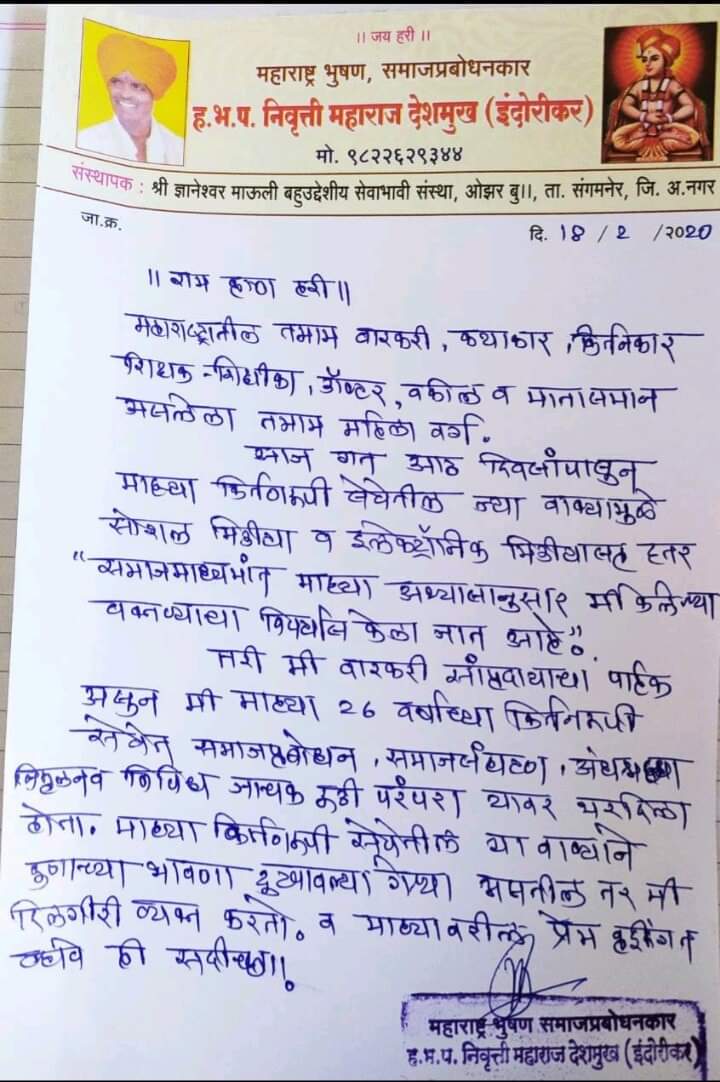 ॥ जय हरी ॥
महाराष्ट्र भुषण, समाजप्रबोधनकार
ह.भ.प. निवृत्ती महाराज देशमुख (इंदोरीकर)
मो. ९८२२६२९३४४
संस्थापक : श्री ज्ञानेश्वर माऊली बहुउद्देशीय सेवाभावी संस्था, ओझर बु॥, ता. संगमनेर, जि. अ.नगर
जा.क्र.
दि. 18 / 2 / २०20
॥ राम कृष्ण हरी ॥
महाराष्ट्रातील तमाम वारकरी, कथाकार, किर्तनकार
शिक्षक - शिक्षीका, डॉक्टर, वकील व मातासमान
असलेला तमाम महिला वर्ग.
आज गत आठ दिवसांपासुन
माझ्या किर्तनरूपी सेवेतील ज्या वाक्यामुळे
सोशल मिडीया व इलेक्ट्रॉनिक मिडीयासह इतर
"समाजमाध्यमांत माझ्या अभ्यासानुसार मी केलेल्या
वक्तव्याचा विपर्यास केला जात आहे."
तरी मी वारकरी सांप्रदायाचा पाईक
असुन मी माझ्या 26 वर्षाच्या किर्तनरूपी
सेवेत समाजप्रबोधन, समाजसंघटण, अंधश्रद्धा
निमुर्लन व विविध जाचक रूढी परंपरा यावर भर दिला
होता. माझ्या किर्तनरूपी सेवेतील या वाक्याने
कुणाच्या भावणा दुखावल्या गेल्या असतील तर मी
दिलगीरी व्यक्त करतो. व माझ्यावरील प्रेम वृद्धिंगत
व्हावे ही सदीच्छा॥.
महाराष्ट्र भुषण समाजप्रबोधनकार
ह.भ.प. निवृत्ती महाराज देशमुख (इंदोरीकर)